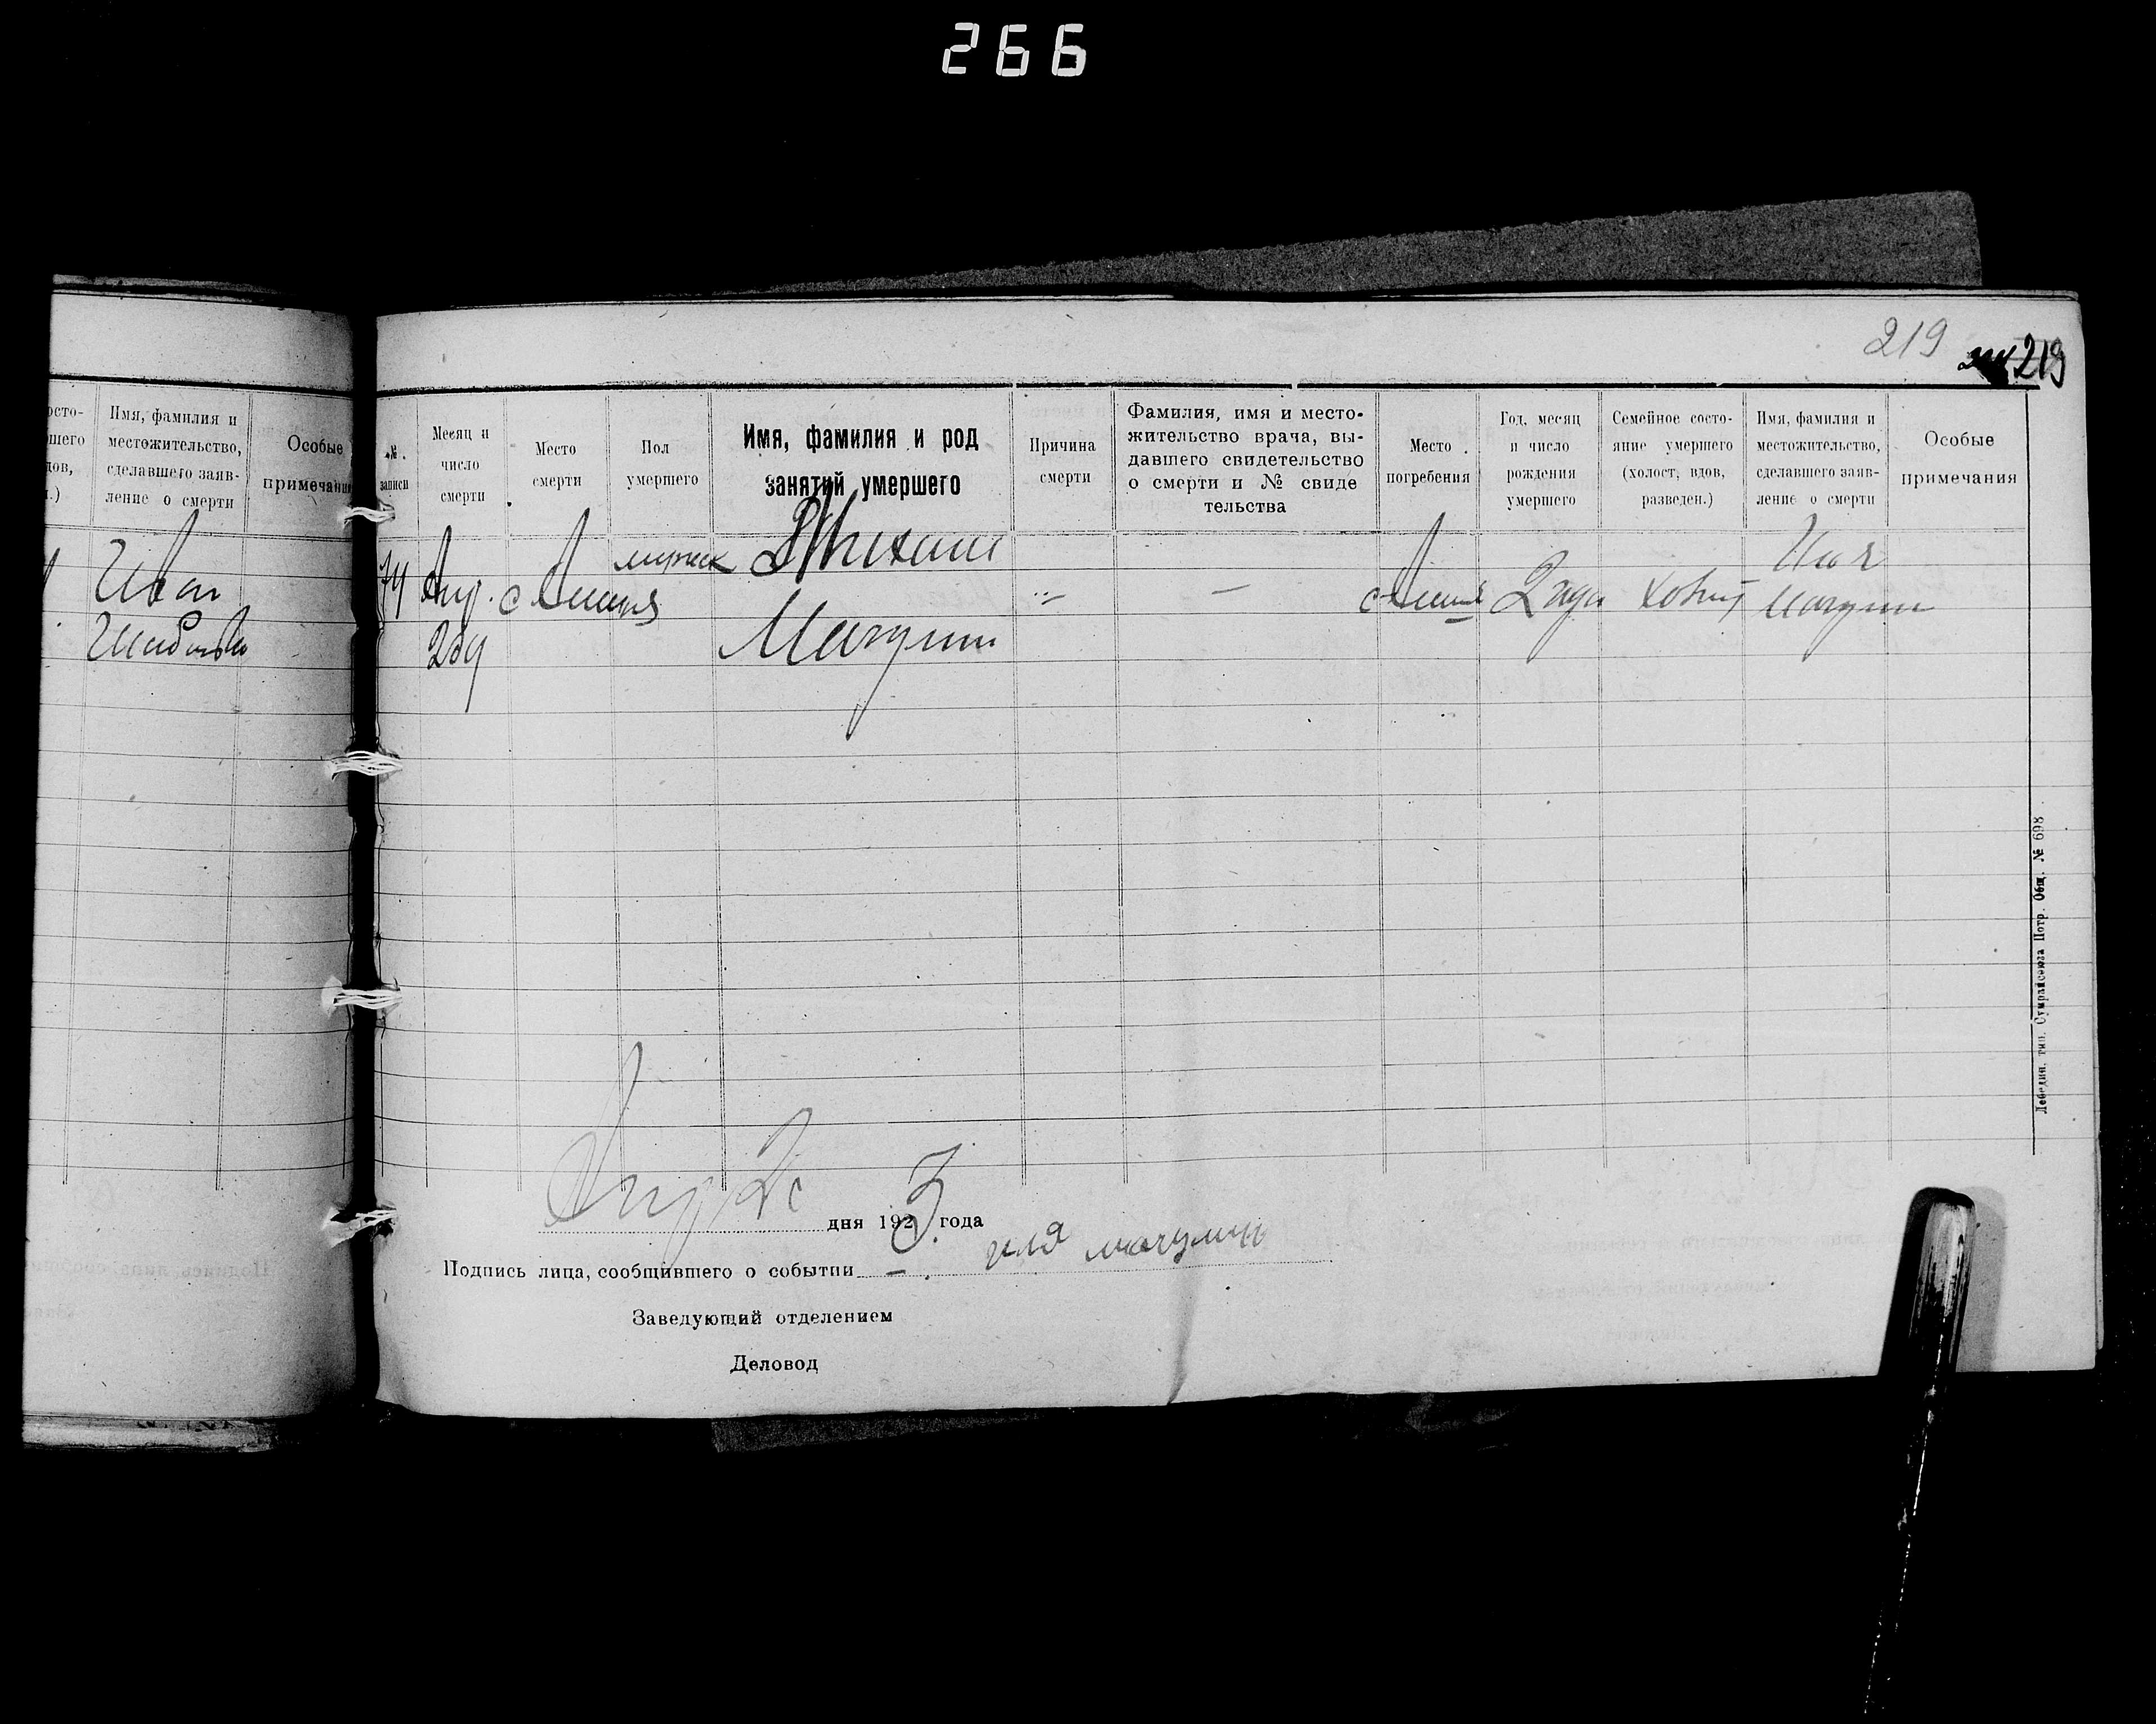 266
219
219
осто-
шего
дов,
.)
Имя, фамилия и
местожительство,
сделавшего заяв-
ление о смерти
Особые
примечания
Иван
№
записи
Месяц и
число
смерти
Место
смерти
Пол
умершего
Имя, фамилия и род
занятий умершего
Причина
смерти
Фамилия, имя и место-
жительство врача, вы-
давшего свидетельство
о смерти и № свиде
тельства
Место
погребения
Год, месяц
и число
рождения
умершего
Семейное состо-
яние умершего
(холост, вдов,
разведен.)
Имя, фамилия и
местожительство,
сделавшего заяв-
ление о смерти
Особые
примечания
74 Апр. с мужск Михаил 2 года Илья
Мачулин
дня 1923 года
Подпись лица, сообщившего о событии иля мачулин
Заведующий отделением
Деловод
Лебедин. тип. Сумрайсоюза Потр. Общ. № 698